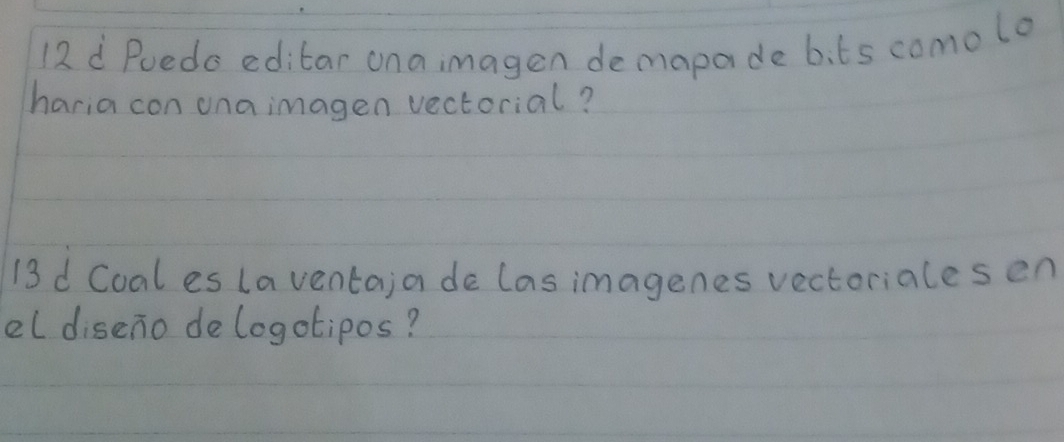 12 ¿Puedo editar una imagen de mapa de bits como lo
haria con una imagen vectorial?
13 ¿Cual es la ventaja de las imagenes vectoriales en
el diseño de logotipos?